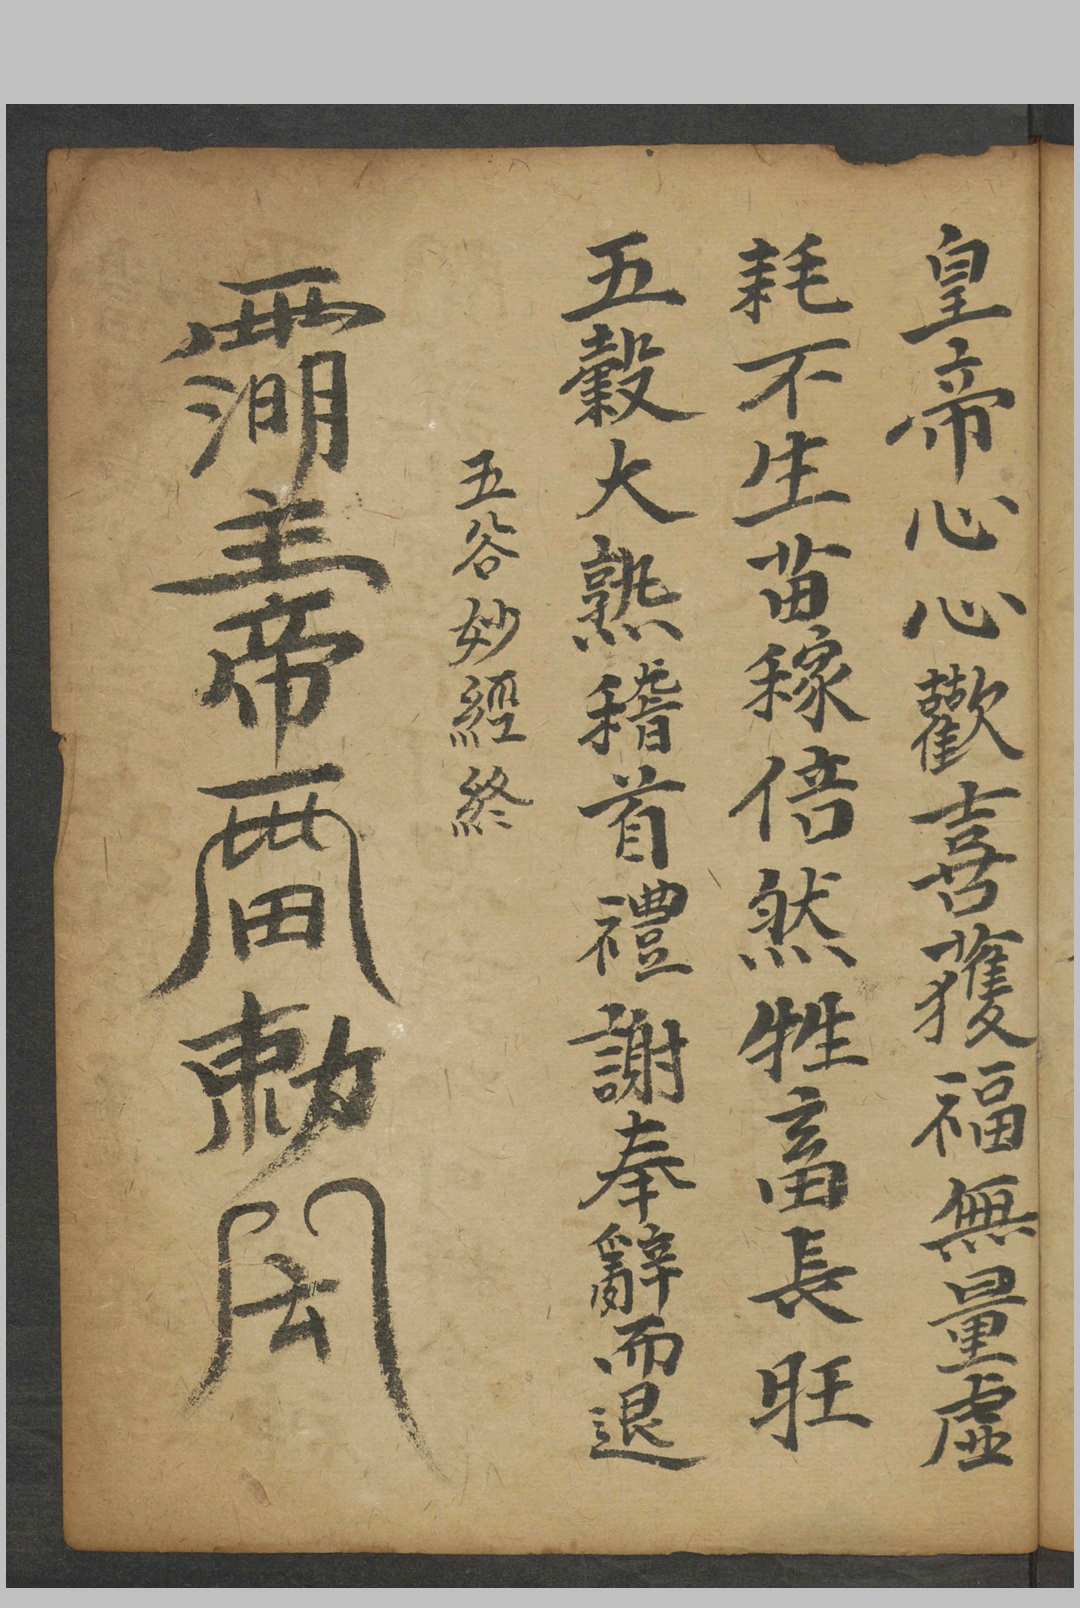 皇帝心心歡喜獲福無量虛
耗不生苗稼倍然牲畜長旺
五穀大熟稽首禮謝奉辭而退
五谷妙經終
帝
勅